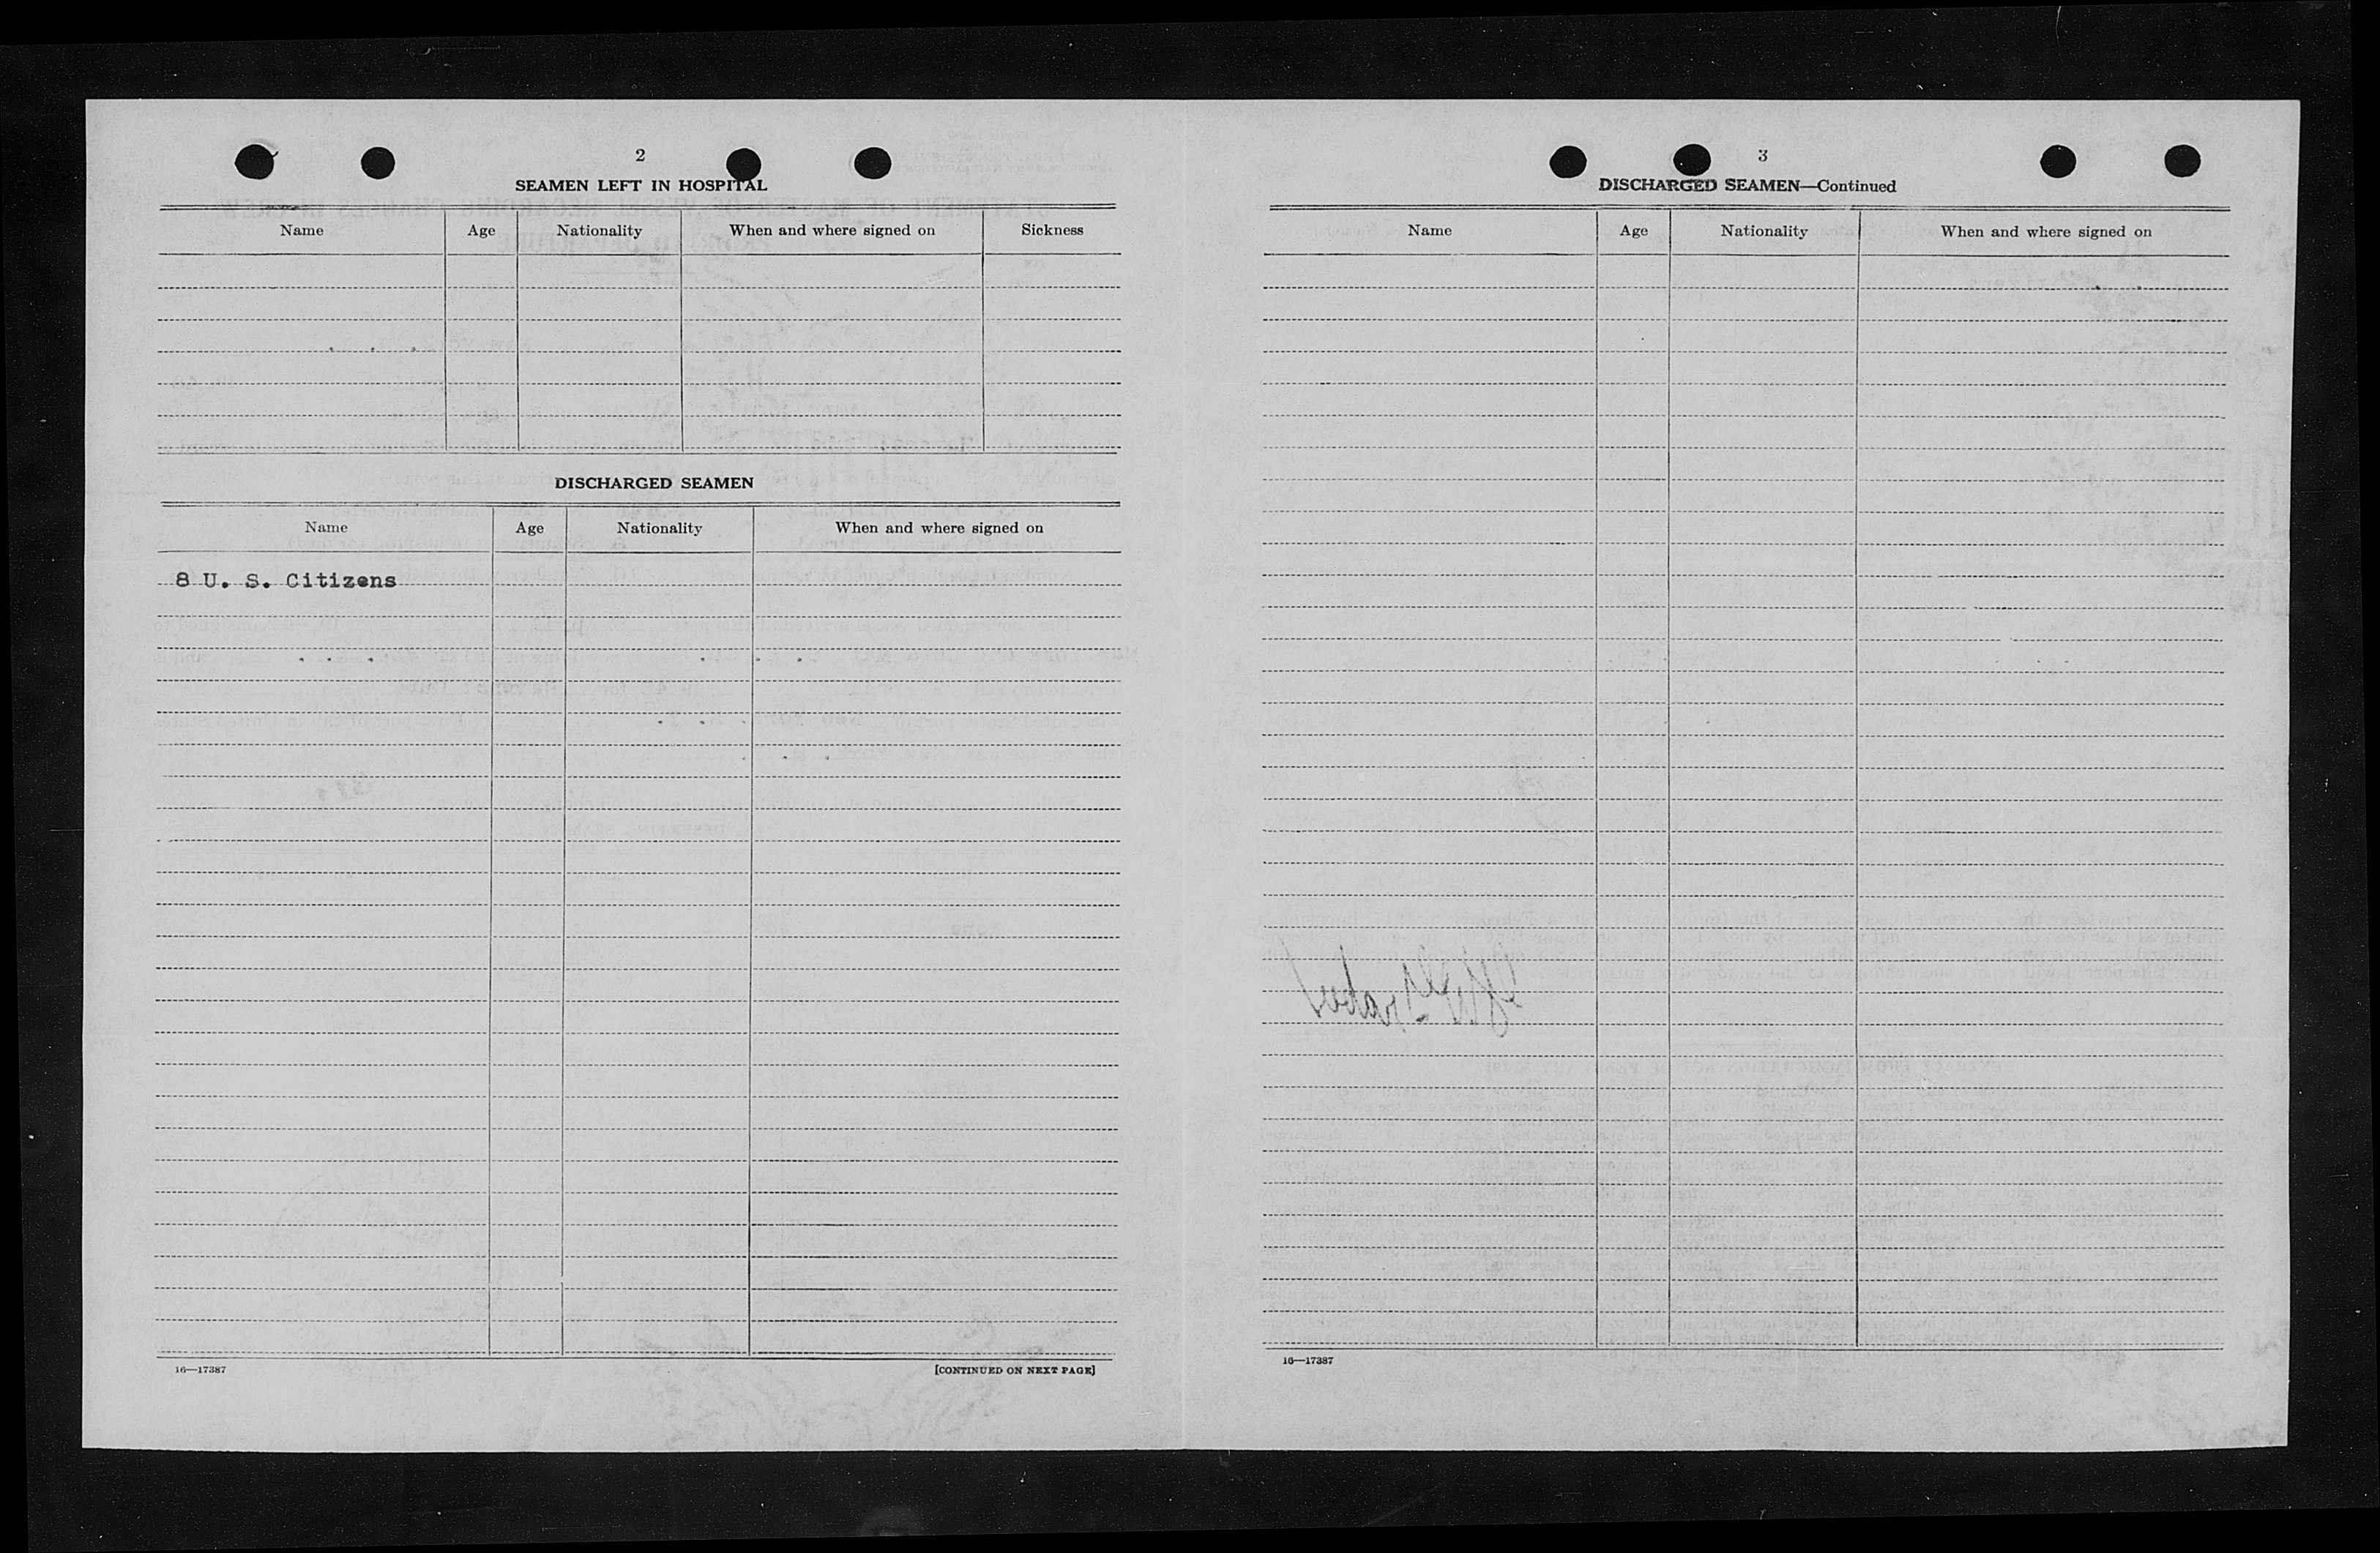 2
SEAMEN LEFT IN HOSPITAL
Name Age Nationality When and where signed on Sickness
DISCHARGED SEAMEN
Name Age Nationality When and where signed on
8 U. S. Citizens
16—17387 [CONTINUED ON NEXT PAGE]
3
DISCHARGED SEAMEN—Continued
Name Age Nationality When and where signed on
16—17387